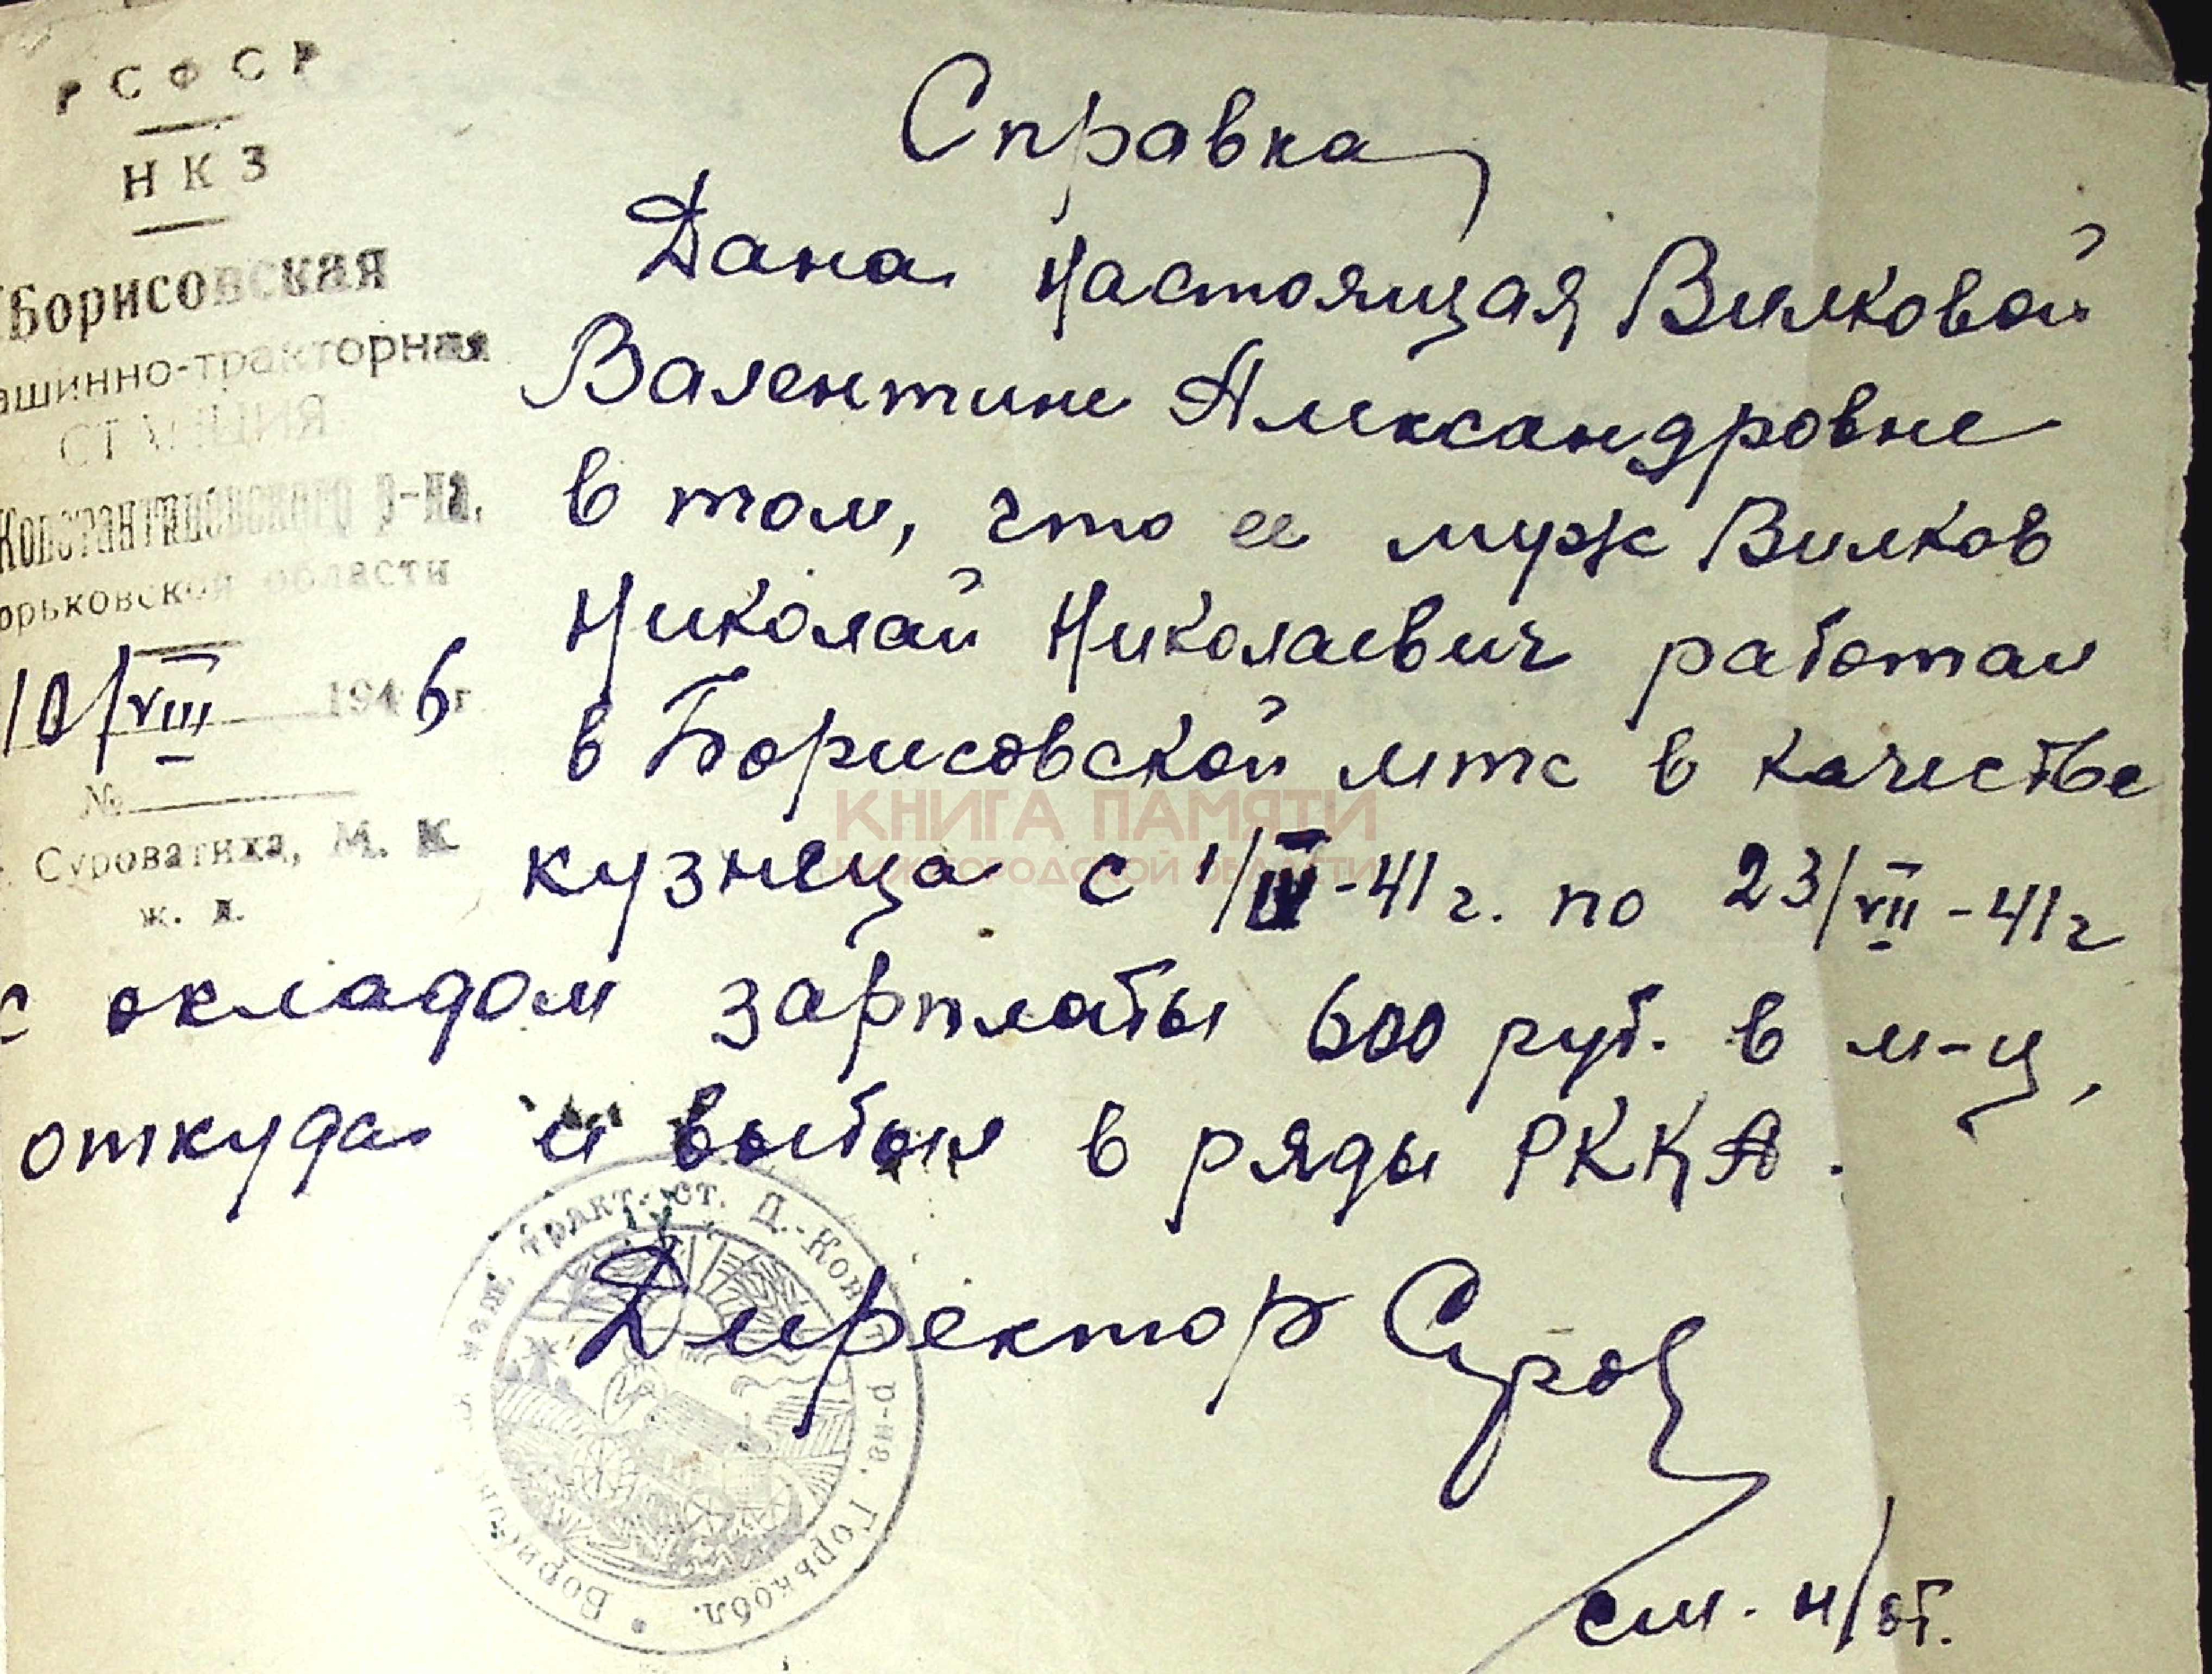 РСФСР
НКЗ
Борисовская
ашинно-тракторная
СТАНЦИЯ
Константиновского р-на,
орьковской области
10/VIII 1946 г.
№
Суроватиха, М. К.
ж. д.
Справка
Дана настоящая Вилковой
Валентине Александровне
в том, что ее муж Вилков
Николай Николаевич работал
в Борисовской мтс в качестве
кузнеца с 1/IV-41г. по 23/VII-41г
с окладом зарплаты 600 руб. в м-ц,
откуда и выбыл в ряды РККА.
Директор
см. н/об.
КНИГА ПАМЯТИ
НИЖЕГОРОДСКОЙ ОБЛАСТИ
маш. тракт. ст. Д.-Кон р-на, Горькобл.